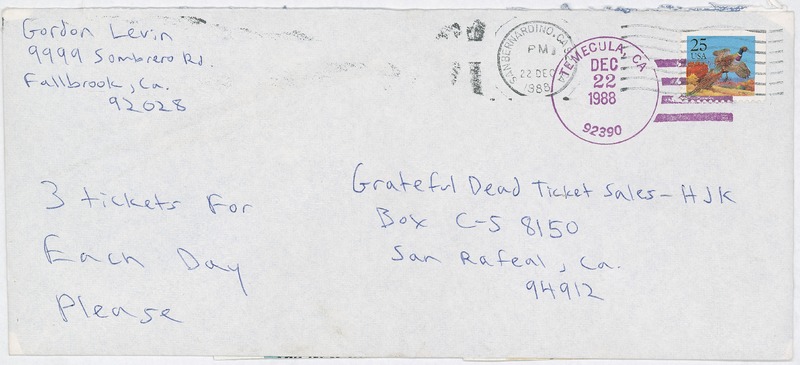 Gordon Levin
9999 Sombrero Rd.
Fallbrook, Ca.
92028
SAN BERNARDINO, CA
PM
22 DEC
1988
TEMECULA, CA
DEC
22
1988
92390
25
USA
3 tickets For
Each Day
Please
Grateful Dead Ticket Sales - HJK
Box C-S 8150
San Rafeal, Ca.
94912